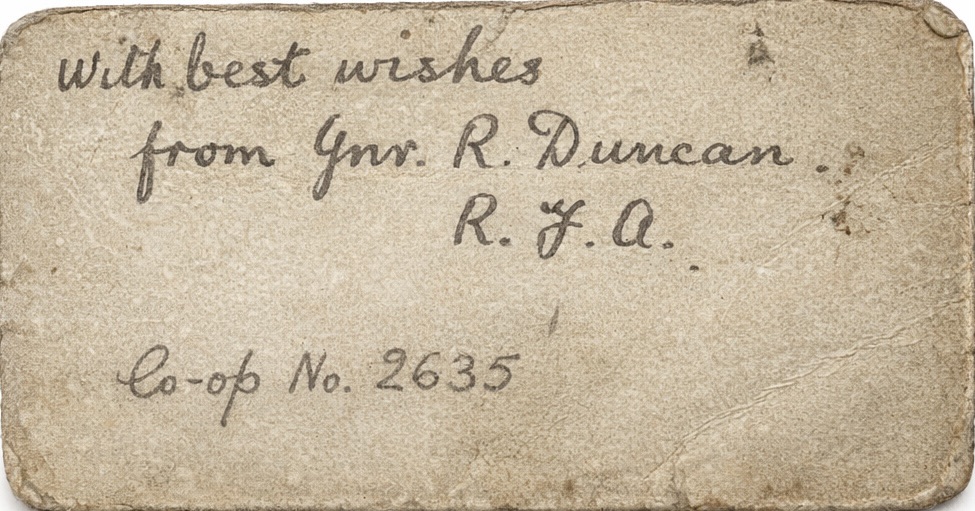 with best wishes
from Gnr. R. Duncan.
R. F. A.
Co-op No. 2635